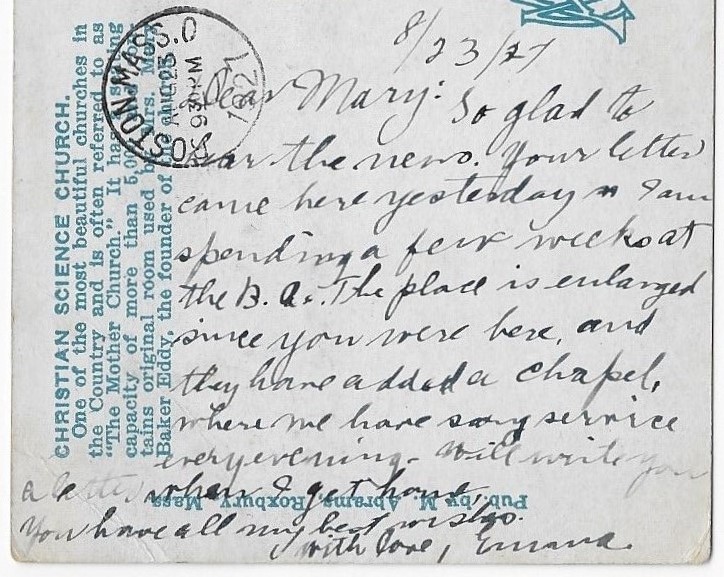 8/23/27
Dear Mary: So glad to
hear the news. Your letter
came here yesterday I am
spending a few weeks at
the B. A. The place is enlarged
since you were here, and
they have added a chapel,
where we have song service
every evening. Will write you
a letter when I get home.
You have all my best wishes.
with love, Emma.
CHRISTIAN SCIENCE CHURCH.
One of the most beautiful churches in
the Country and is often referred to as
"The Mother Church." It has a seating
capacity of more than 5,000 and
tains original room used by Mrs. Mary
Baker Eddy, the founder of the church.
BOSTON MASS.
AUG 23
9 30 AM
1927
Pub. by M. Abrams, Roxbury, Mass.